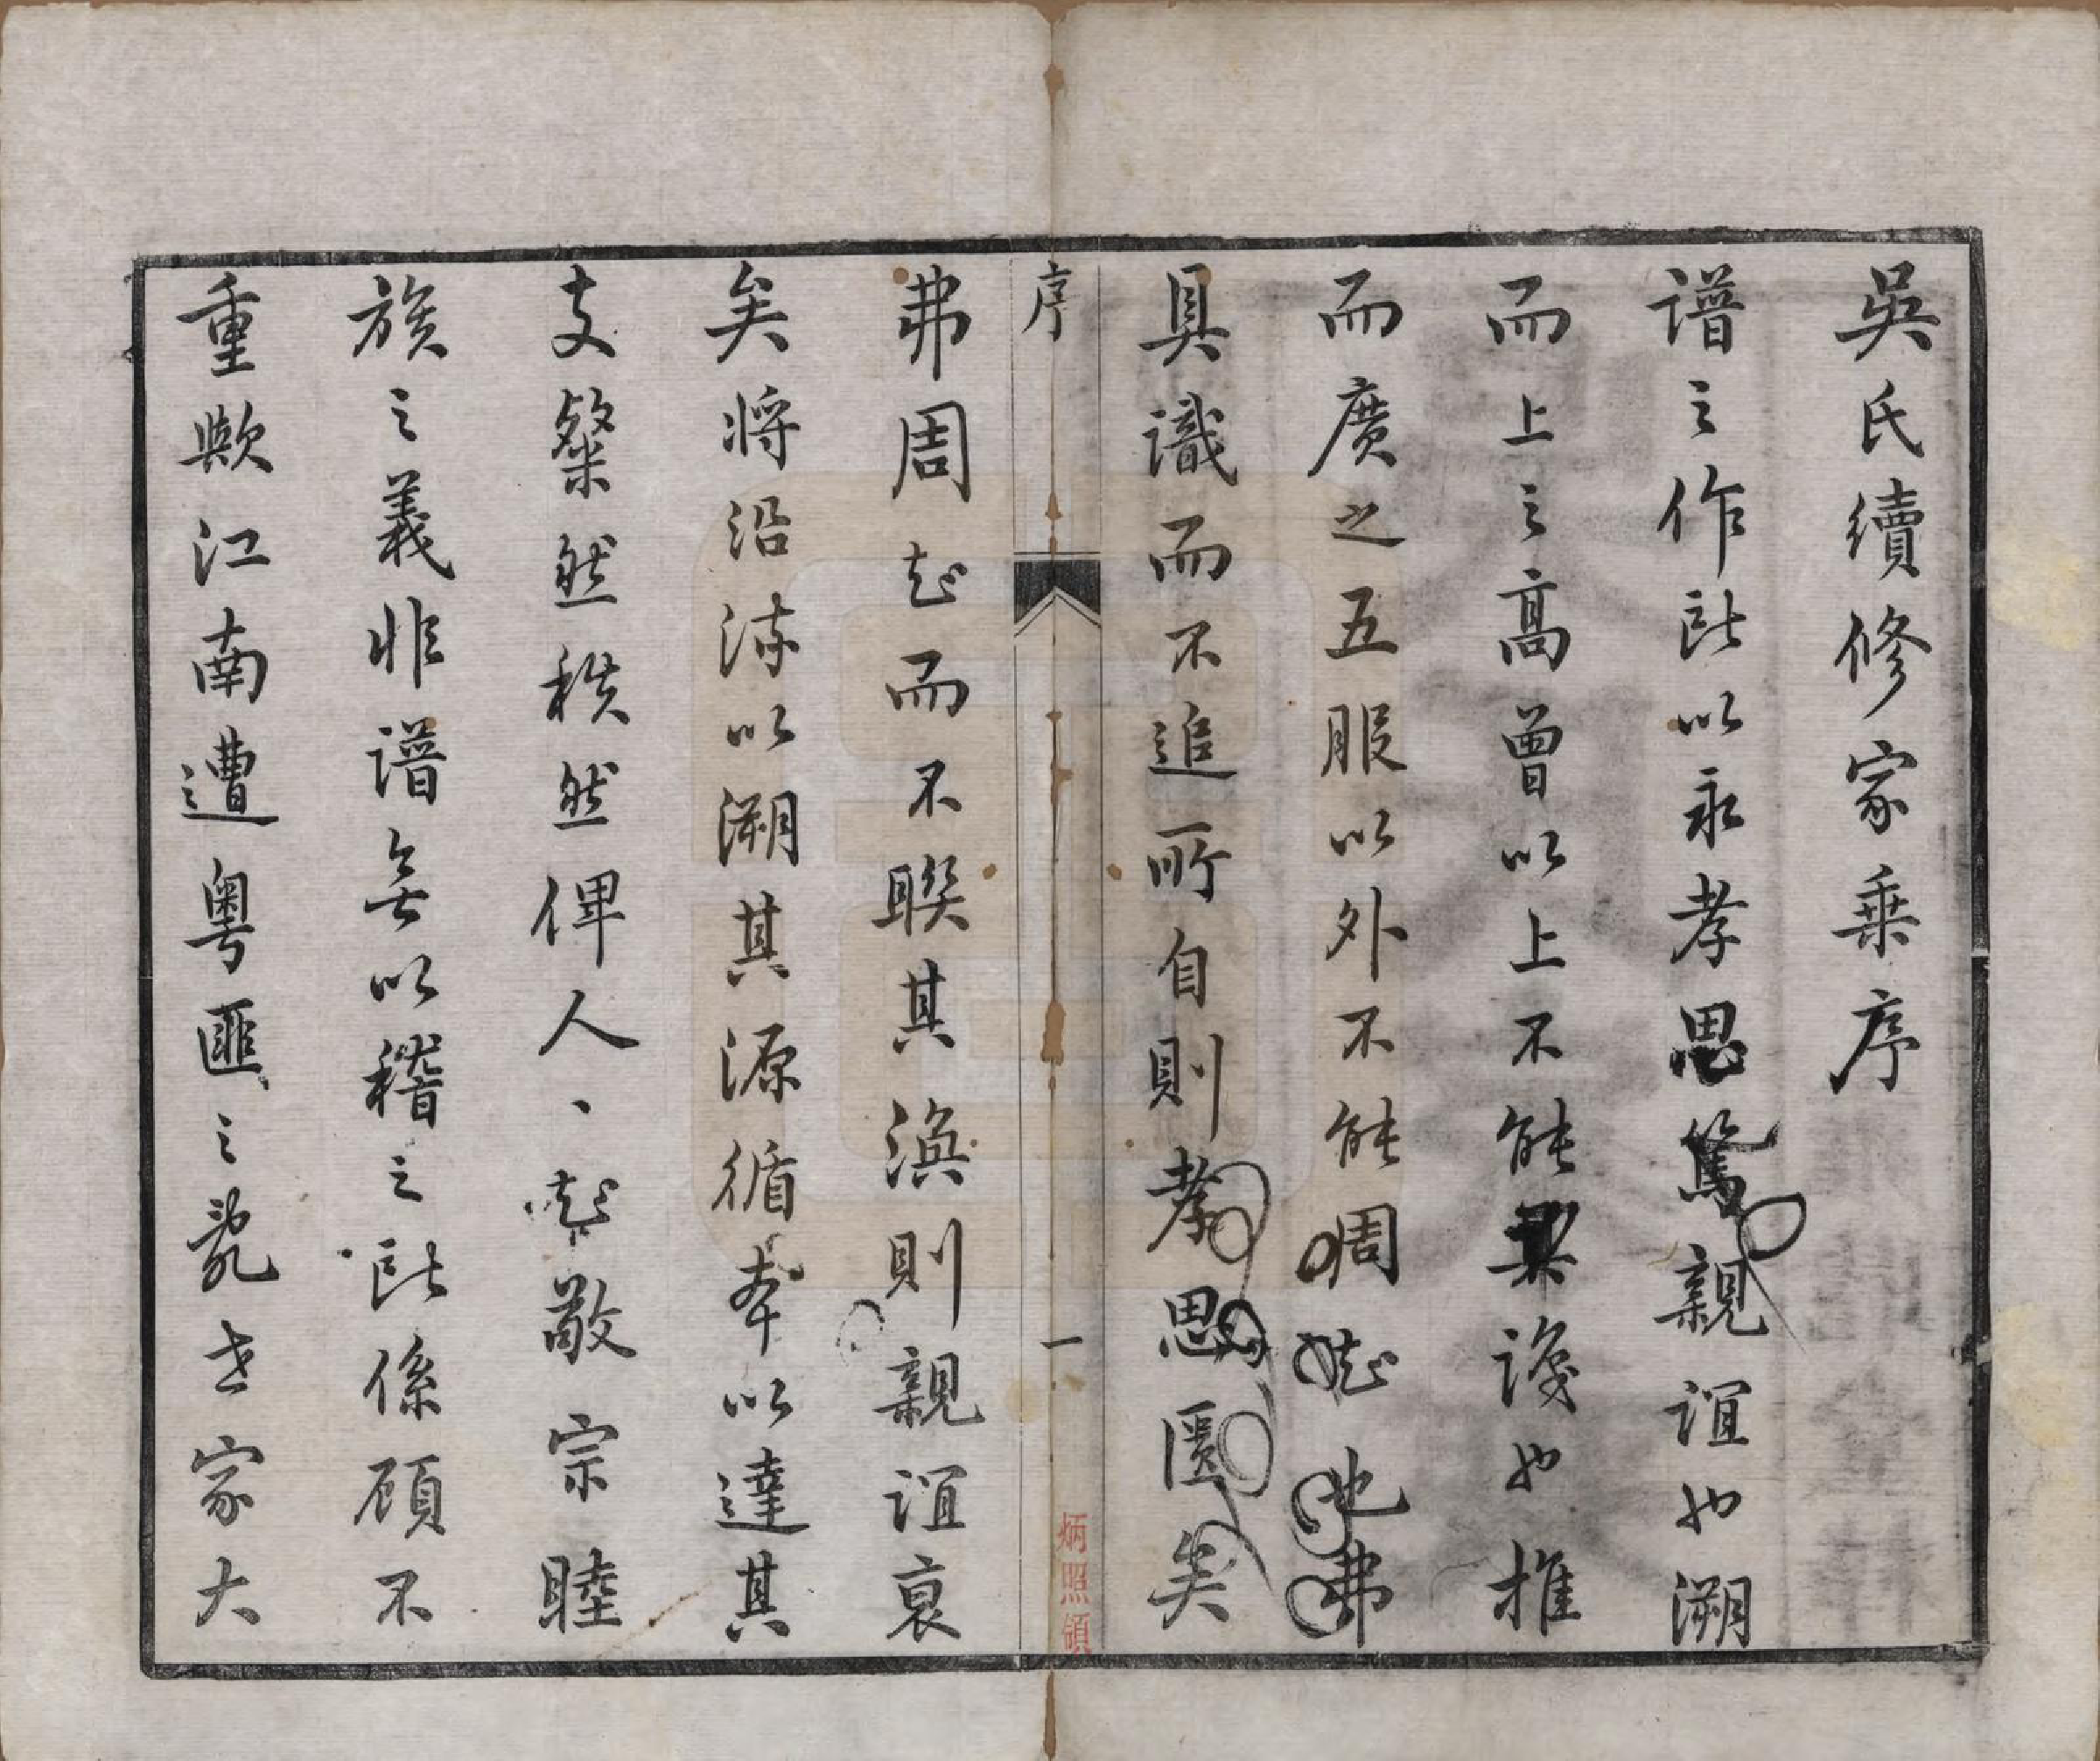 吳氏續修家乗序
譜之作所以永孝思篤親誼也溯
而上之高曾以上不能具識也推
而廣之五服以外不能周知也弗
具識而不追所自則孝思匱矣
序
一
炳照領
弗周知而不聯其渙則親誼衰
矣將沿流以溯其源循夲以達其
支粲然秩然俾人、知敬宗睦
族之義非譜無以稽之所係顧不
重歟江南遭粤匪之亂世家大